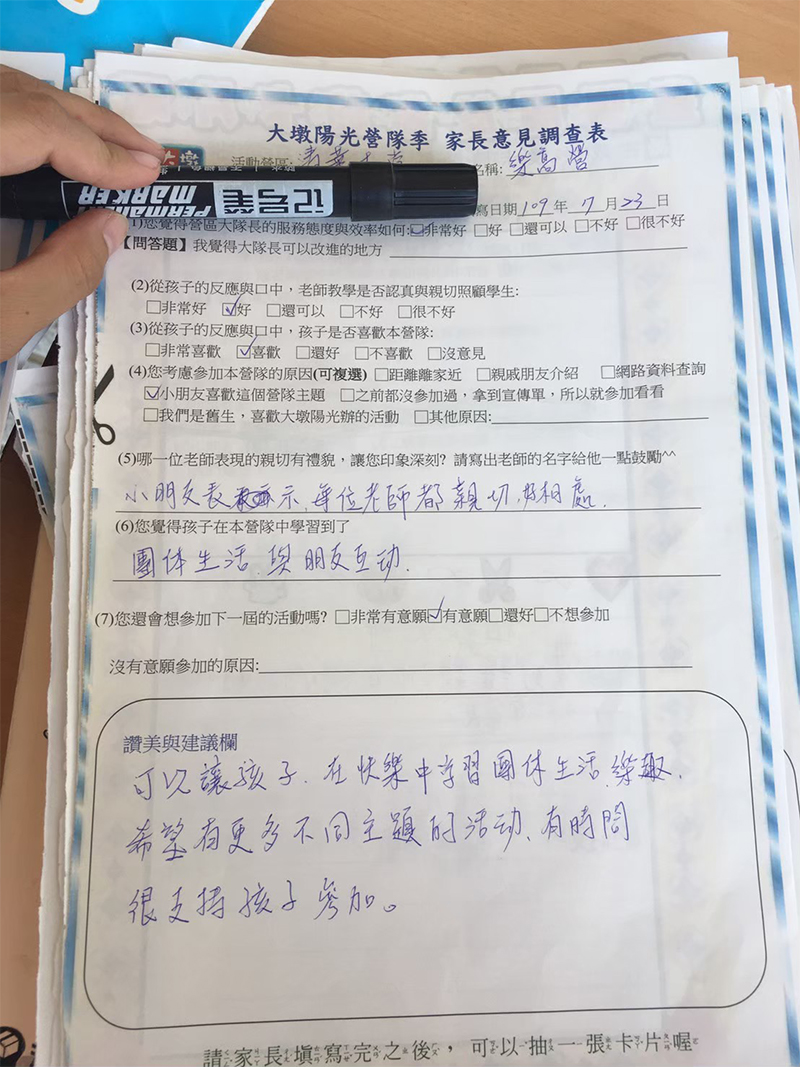 大墩陽光營隊季 家長意見調查表
大墩
活動營區:
名稱: 樂高營
記号笔
PERMANENT MARKER
寫日期109年7月23日
1)您覺得營區大隊長的服務態度與效率如何:☑非常好 □好 □還可以 □不好 □很不好
【問答題】我覺得大隊長可以改進的地方
(2)從孩子的反應與口中，老師教學是否認真與親切照顧學生:
□非常好 ☑好 □還可以 □不好 □很不好
(3)從孩子的反應與口中，孩子是否喜歡本營隊:
□非常喜歡 ☑喜歡 □還好 □不喜歡 □沒意見
(4)您考慮參加本營隊的原因(可複選) □距離離家近 □親戚朋友介紹 □網路資料查詢
☑小朋友喜歡這個營隊主題 □之前都沒參加過，拿到宣傳單，所以就參加看看
□我們是舊生，喜歡大墩陽光辦的活動 □其他原因:
(5)哪一位老師表現的親切有禮貌，讓您印象深刻? 請寫出老師的名字給他一點鼓勵^^
小朋友表示、每位老師都親切、好相處.
(6)您覺得孩子在本營隊中學習到了
團体生活、與朋友互动.
(7)您還會想參加下一屆的活動嗎? □非常有意願☑有意願□還好□不想參加
沒有意願參加的原因:
讚美與建議欄
可以讓孩子.在快樂中学習團体生活.樂趣.
希望有更多不同主題的活动、有時間
很支持孩子參加。
請家長填寫完之後，可以抽一張卡片喔